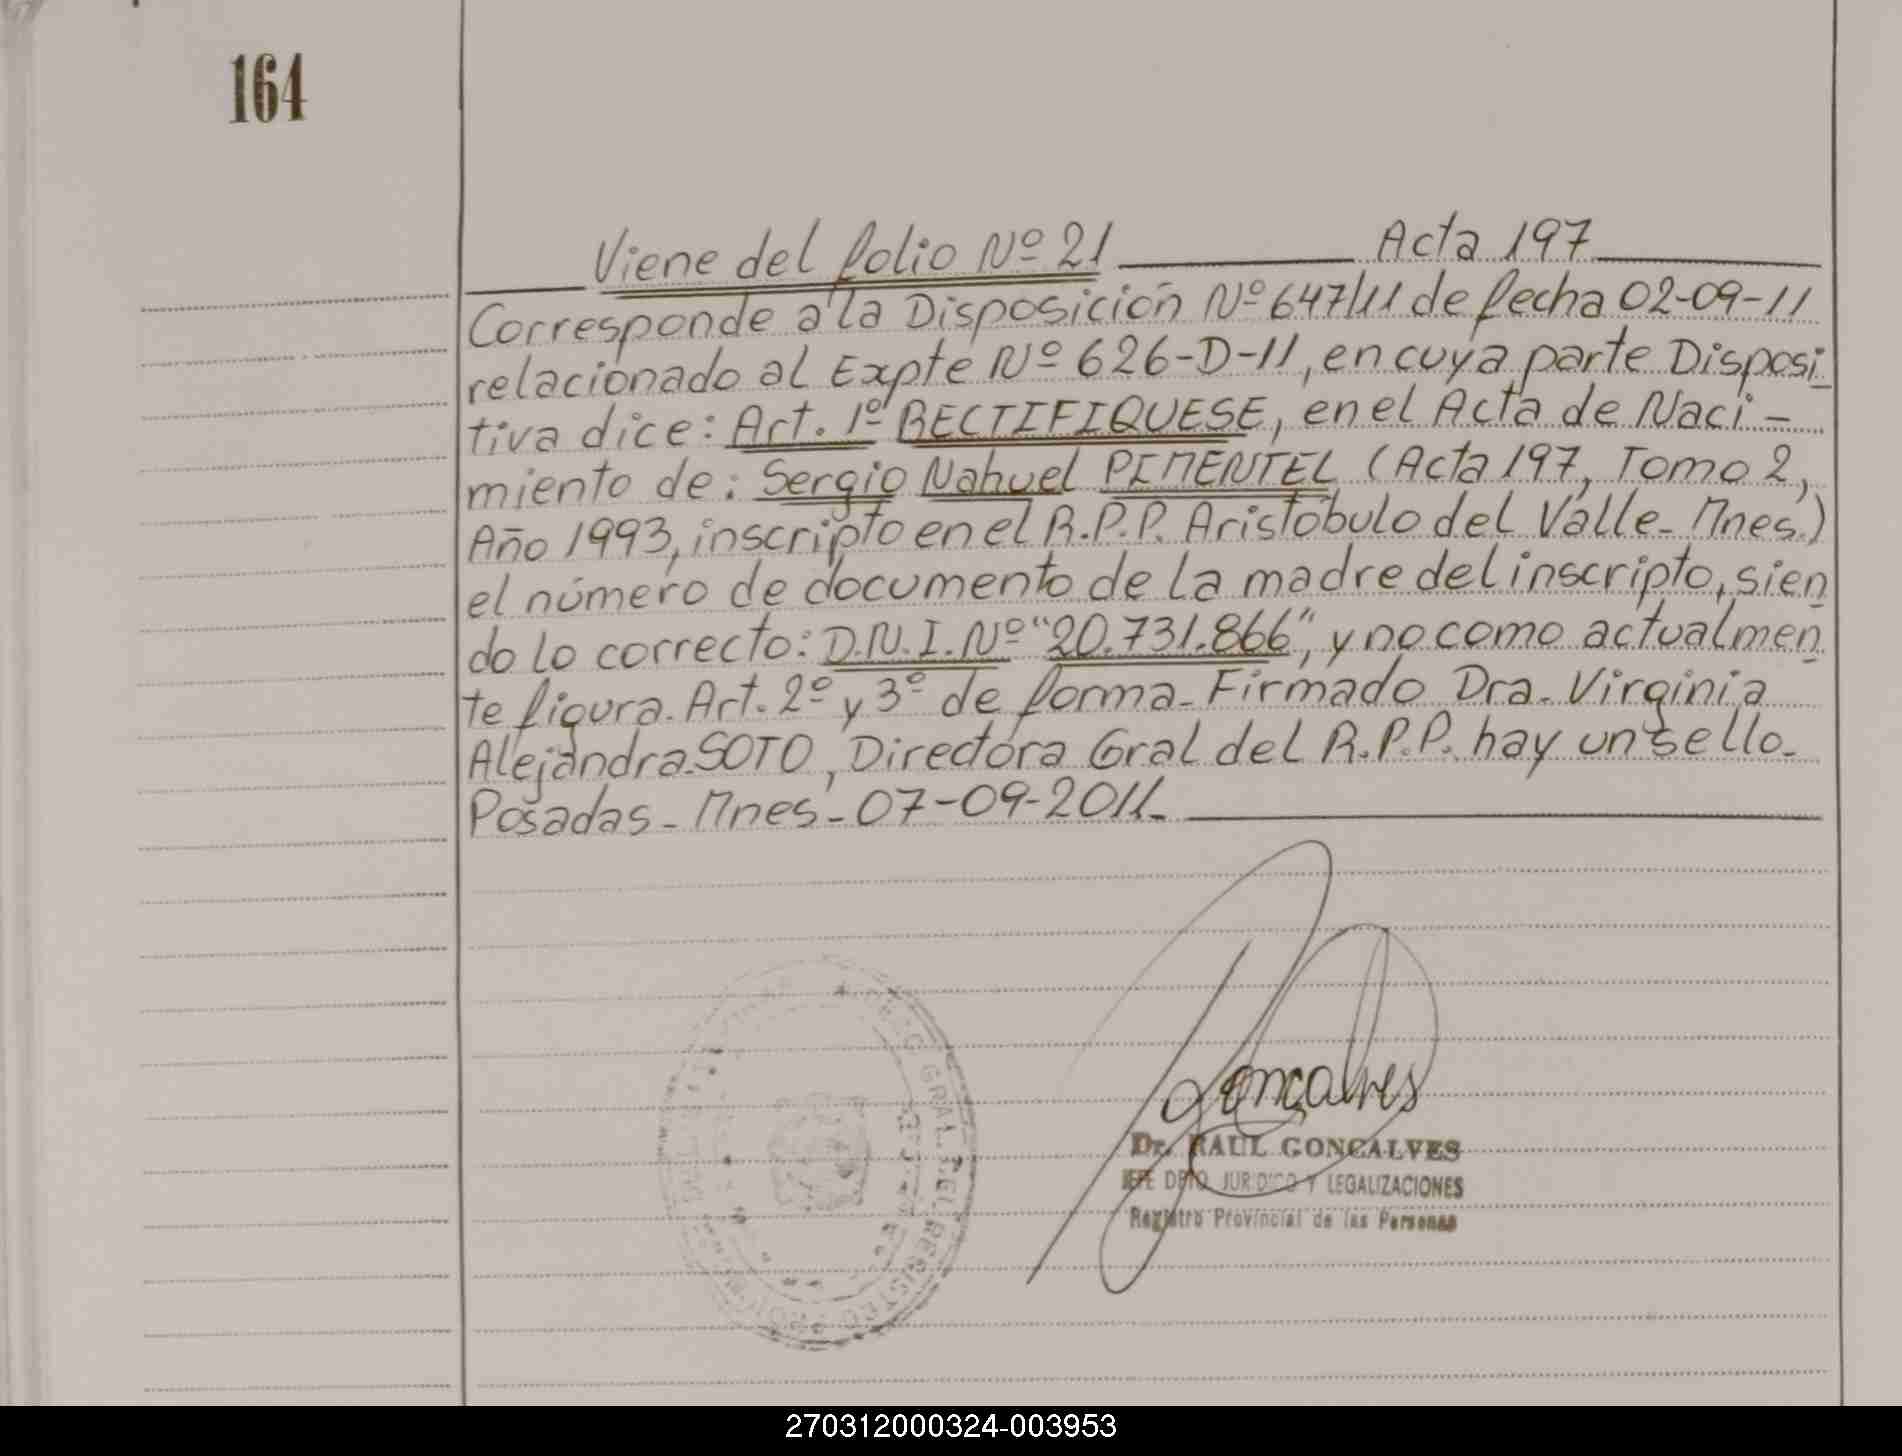 164
Viene del folio Nº 21 Acta 197
Corresponde a la Disposición Nº 647/11 de fecha 02-09-11
relacionado al Expte Nº 626-D-11, en cuya parte Disposi
tiva dice: Art. 1º RECTIFIQUESE, en el Acta de Naci-
miento de: Sergio Nahuel PIMENTEL (Acta 197, Tomo 2,
Año 1993, inscripto en el R.P.P. Aristóbulo del Valle-Mnes.)
el número de documento de la madre del inscripto, sien
do lo correcto: D.N.I. Nº "20.731.866", y no como actualmen
te figura. Art. 2º y 3º de forma-Firmado Dra. Virginia
Alejandra SOTO, Directora Gral del R.P.P. hay un sello.
Posadas-Mnes-07-09-2011-
Goncalves
Dr. RAUL GONCALVES
JEFE DPTO JURIDICO Y LEGALIZACIONES
Registro Provincial de las Personas
GRAL. DEL REGISTRO
270312000324-003953